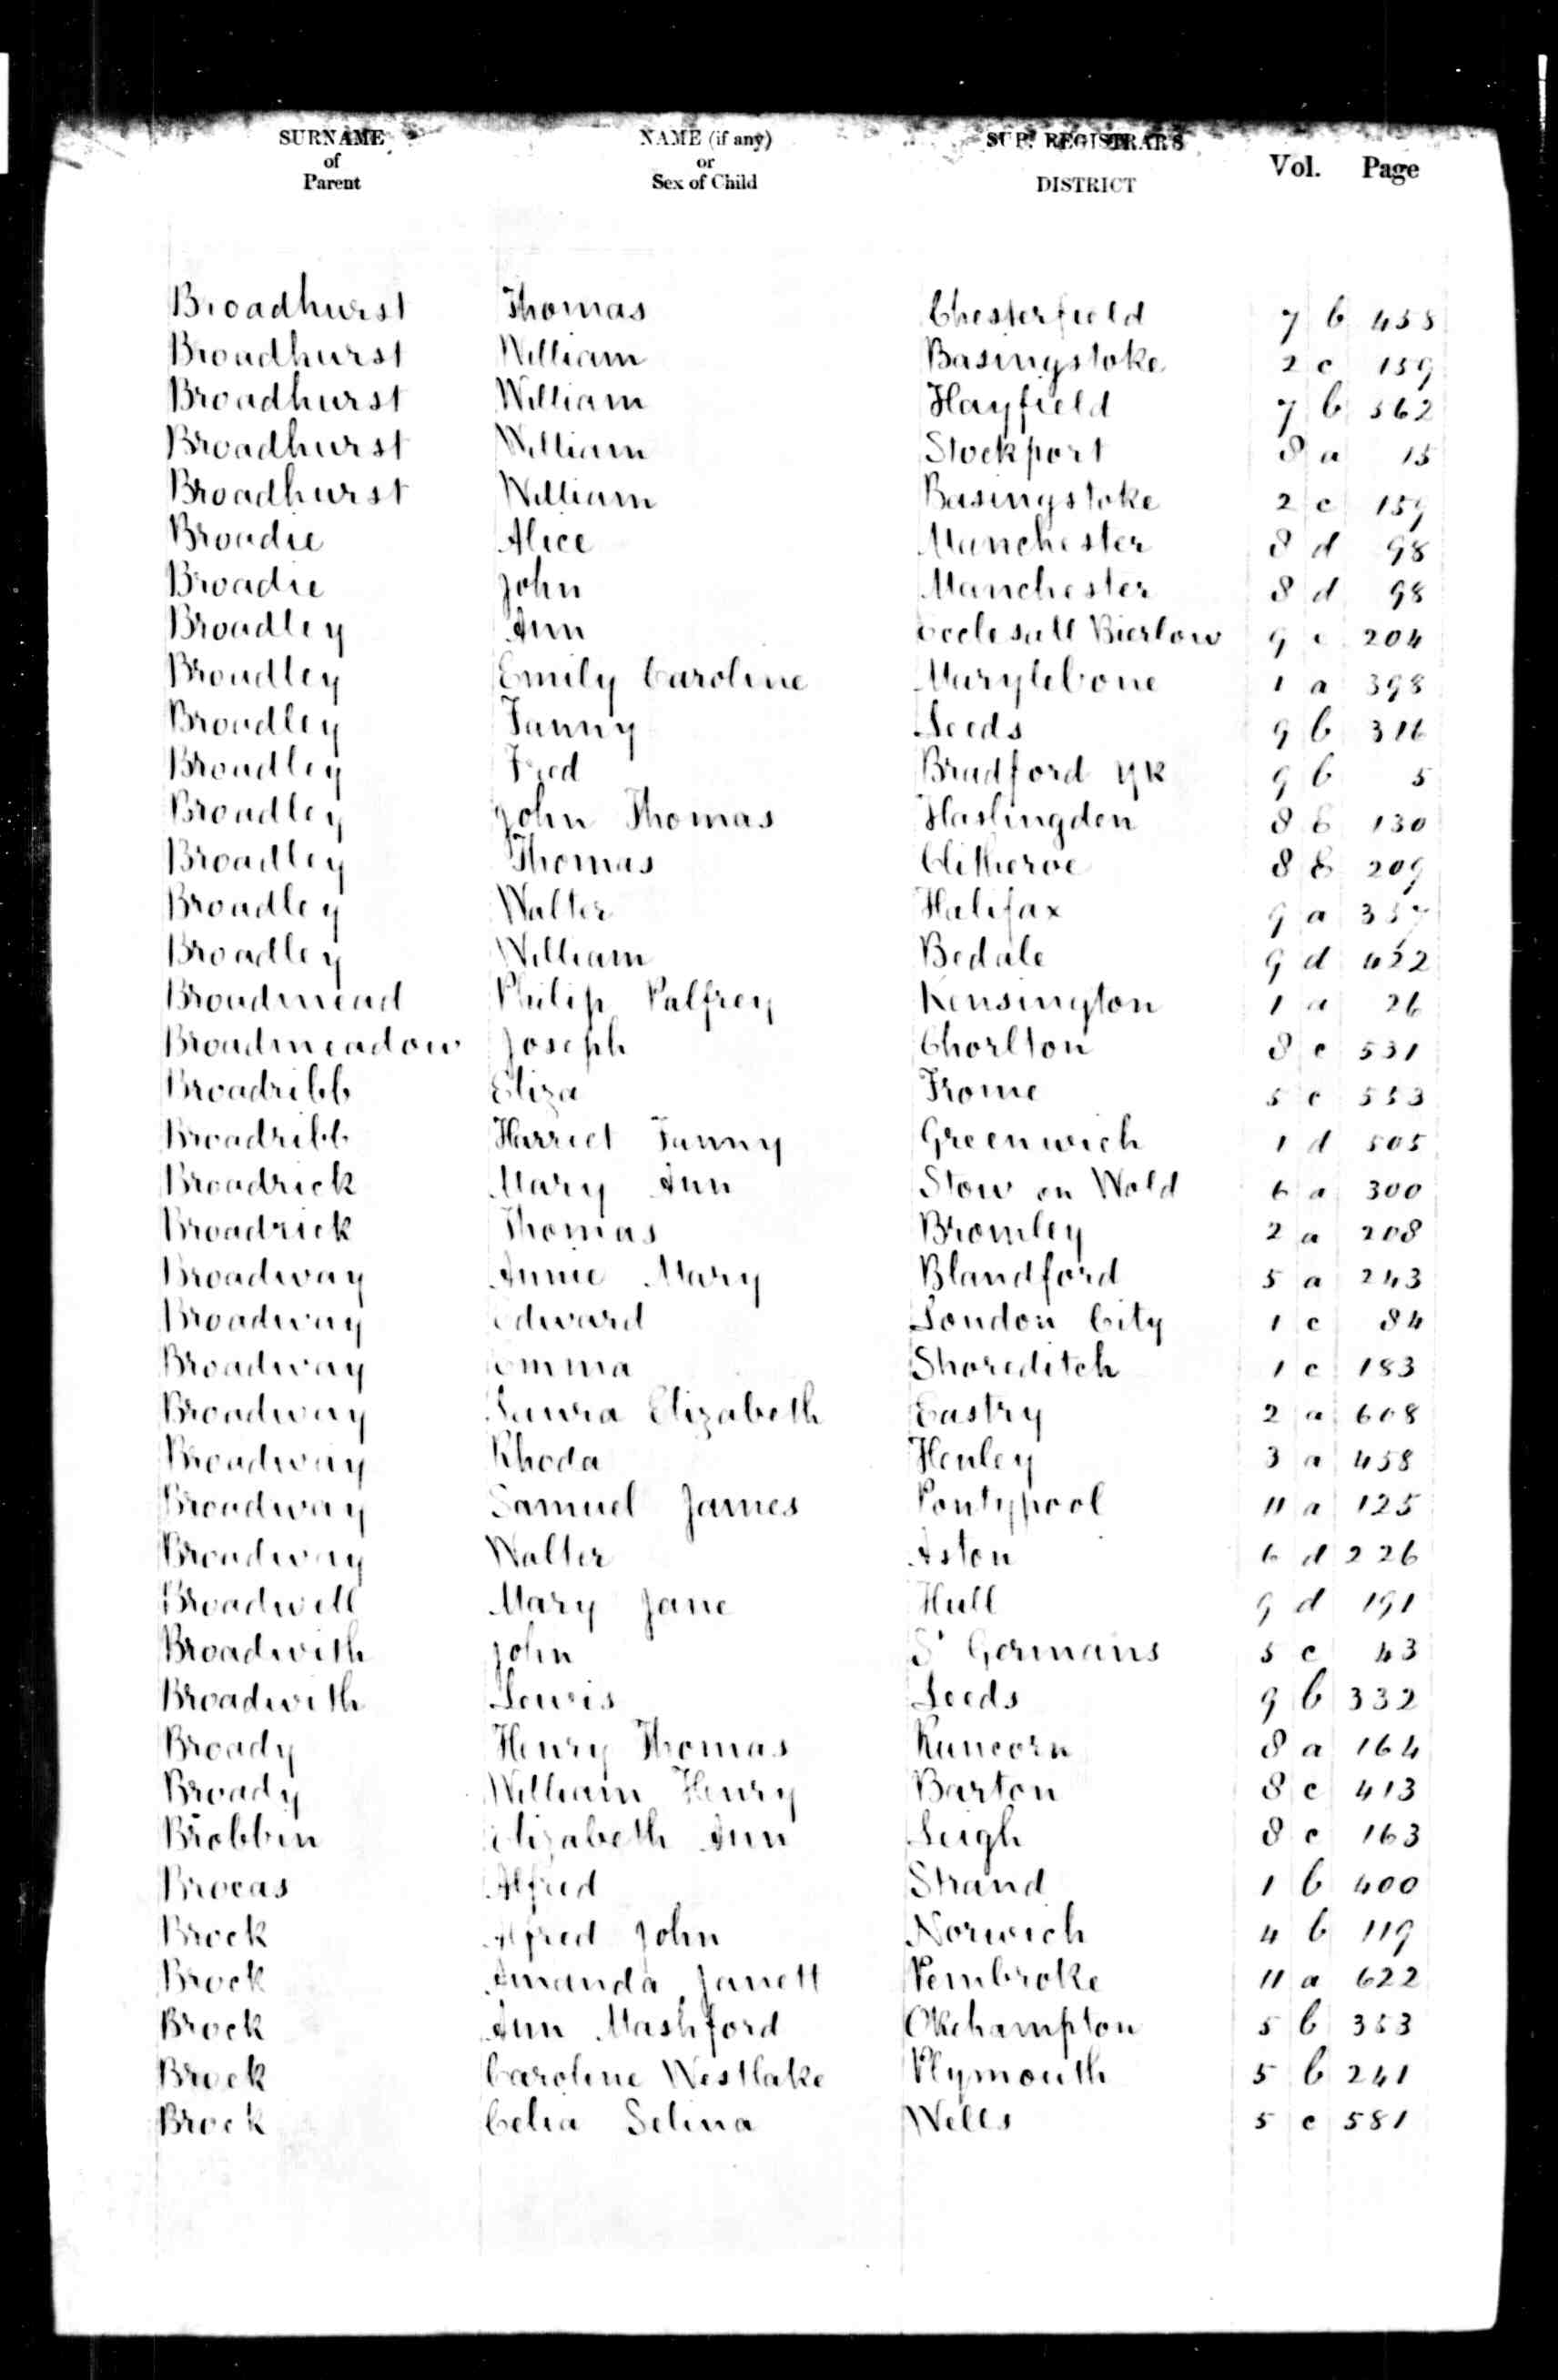 SURNAME of Parent NAME (if any) or Sex of Child SUP. REGISTRAR'S DISTRICT Vol. Page
Broadhurst Thomas Chesterfield 7 b 458
Broadhurst William Basingstoke 2 c 159
Broadhurst William Hayfield 7 b 562
Broadhurst William Stockport 8 a 15
Broadhurst William Basingstoke 2 c 159
Broadie Alice Manchester 8 d 98
Broadie John Manchester 8 d 98
Broadley Ann Ecclesall Bierlow 9 c 204
Broadley Emily Caroline Marylebone 1 a 398
Broadley Fanny Leeds 9 b 316
Broadley Fred Bradford Yk 9 b 5
Broadley John Thomas Haslingden 8 e 130
Broadley Thomas Clitheroe 8 e 209
Broadley Walter Halifax 9 a
Broadley William Bedale 9 d 452
Broadmead Philip Palfrey Kensington 1 a 26
Broadmeadow Joseph Chorlton 8 c 531
Broadribb Eliza Frome 5 c 553
Broadribb Harriet Fanny Greenwich 1 d 505
Broadrick Mary Ann Stow on Wold 6 a 300
Broadrick Thomas Bromley 2 a 208
Broadway Annie Mary Blandford 5 a 243
Broadway Edward London City 1 c 84
Broadway Emma Shoreditch 1 c 183
Broadway Laura Elizabeth Eastry 2 a 608
Broadway Rhoda Henley 3 a 458
Broadway Samuel James Pontypool 11 a 125
Broadway Walter Aston 6 d 226
Broadwell Mary Jane Hull 9 d 191
Broadwith John St Germans 5 c 43
Broadwith Lewis Leeds 9 b 332
Broady Henry Thomas Runcorn 8 a 164
Broady William Henry Barton 8 c 413
Brobbin Elizabeth Ann Leigh 8 c 163
Brocas Alfred Strand 1 b 400
Brock Alfred John Norwich 4 b 119
Brock Amanda Janett Pembroke 11 a 622
Brock Ann Mashford Okehampton 5 b 353
Brock Caroline Westlake Plymouth 5 b 241
Brock Celia Selina Wells 5 c 581